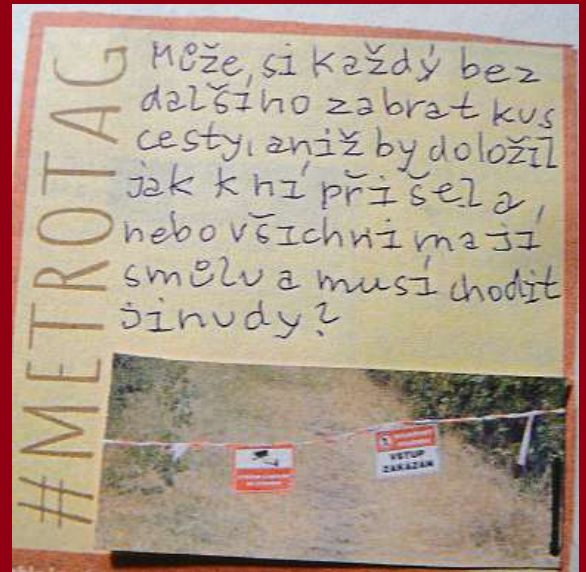 #METROTAG
Může, si každý bez
dalšího zabrat kus
cesty, aniž by doložil
jak k ní přišel a,
nebo všichni mají
smůlu a musí chodit
jinudy?
VSTUP
ZAKÁZÁN